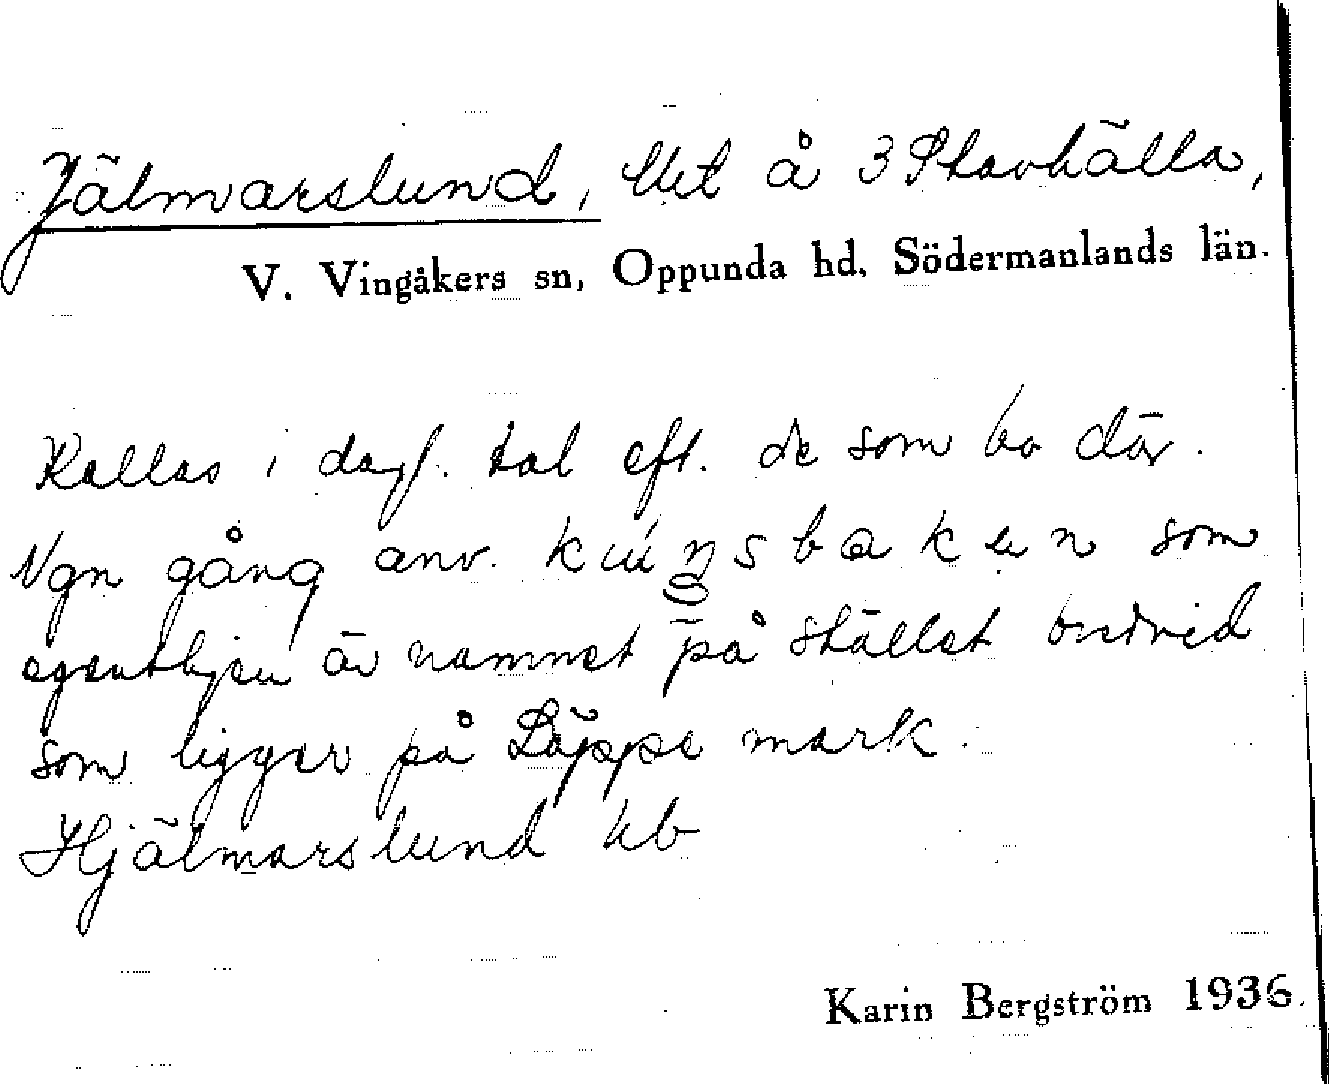 Jälmarslund, lht å 3 Stavhälla,
V. Vingåkers sn, Oppunda hd, Södermanlands län.
Kallas i dagl. tal eft. de som bo där.
Ngn gång anv. kuŋsbakεn som
egentligen är namnet på stället bredvid
som ligger på Läppe mark.
Hjälmarslund kb
Karin Bergström 1936.